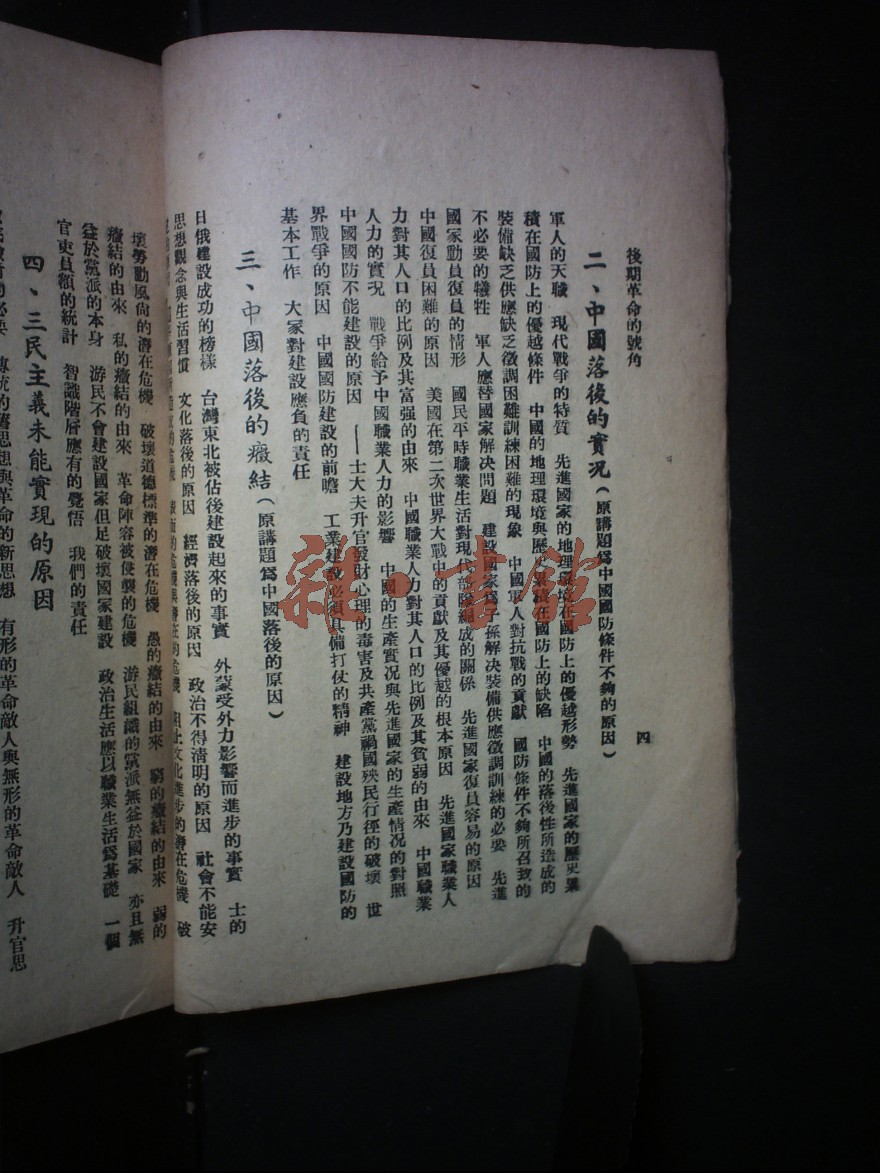 後期革命的號角
四
二、中國落後的實況(原講題爲中國國防條件不夠的原因)
軍人的天職 現代戰爭的特質 先進國家的地理環境在國防上的優越形勢 先進國家的歷史累
積在國防上的優越條件 中國的地理環境與歷史累積在國防上的缺陷 中國的落後性所造成的
裝備缺乏供應缺乏徵調困難訓練困難的現象 中國軍人對抗戰的貢獻 國防條件不夠所召致的
不必要的犧牲 軍人應替國家解決問題 建設國家爲子孫解決裝備供應徵調訓練的必要 先進
國家動員復員的情形 國民平時職業生活對現代部隊組成的關係 先進國家復員容易的原因
中國復員困難的原因 美國在第二次世界大戰中的貢獻及其優越的根本原因 先進國家職業人
力對其人口的比例及其富强的由來 中國職業人力對其人口的比例及其貧弱的由來 中國職業
人力的實況 戰爭給予中國職業人力的影響 中國的生產實況與先進國家的生產情況的對照
中國國防不能建設的原因 ——士大夫升官發財心理的毒害及共產黨禍國殃民行徑的破壞 世
界戰爭的原因 中國國防建設的前瞻 工業建設必須具備打仗的精神 建設地方乃建設國防的
基本工作 大家對建設應負的責任
三、中國落後的癥結(原講題爲中國落後的原因)
日俄建設成功的榜樣 台灣東北被佔後建設起來的事實 外蒙受外力影響而進步的事實 士的
思想觀念與生活習慣 文化落後的原因 經濟落後的原因 政治不得清明的原因 社會不能安
的危機與潛在的危機 阻止文化進步的潛在危機 破
壞勞動風尙的潛在危機 破壞道德標準的潛在危機 愚的癥結的由來 窮的癥結的由來 弱的
癥結的由來 私的癥結的由來 革命陣容被侵襲的危機 游民組織的黨派無益於國家 亦且無
益於黨派的本身 游民不會建設國家但足破壞國家建設 政治生活應以職業生活爲基礎 一個
官吏員額的統計 智識階層應有的覺悟 我們的責任
四、三民主義未能實現的原因
必要 傳統的舊思想與革命的新思想 有形的革命敵人與無形的革命敵人 升官思
雜·書館